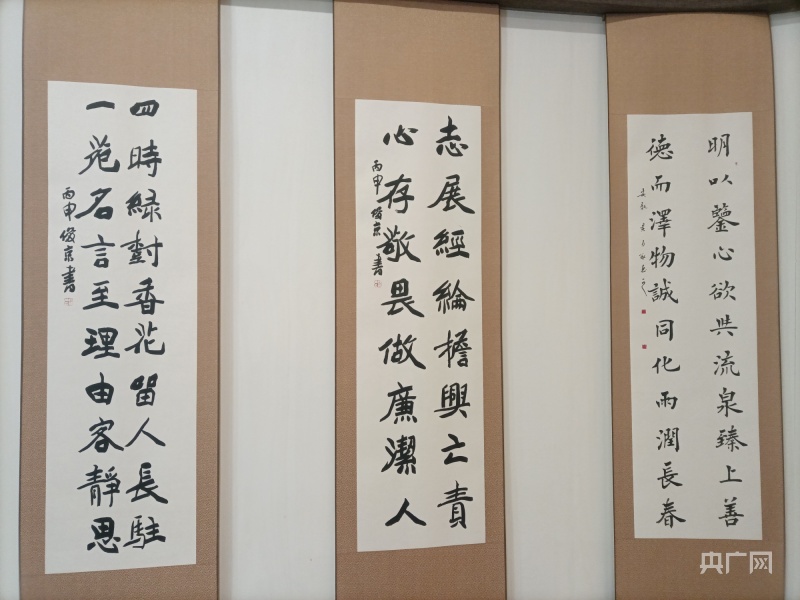 明以鑒心欲與流泉臻上善
德而澤物誠同化雨潤長春
志展經綸擔興亡責
心存敬畏做廉潔人
丙申俊京書
四時緑對香花留人長駐
一苑名言至理由客靜思
丙申俊京書
央广网